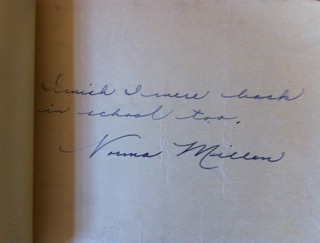 I wish I were back
in school too.
Norma Millen